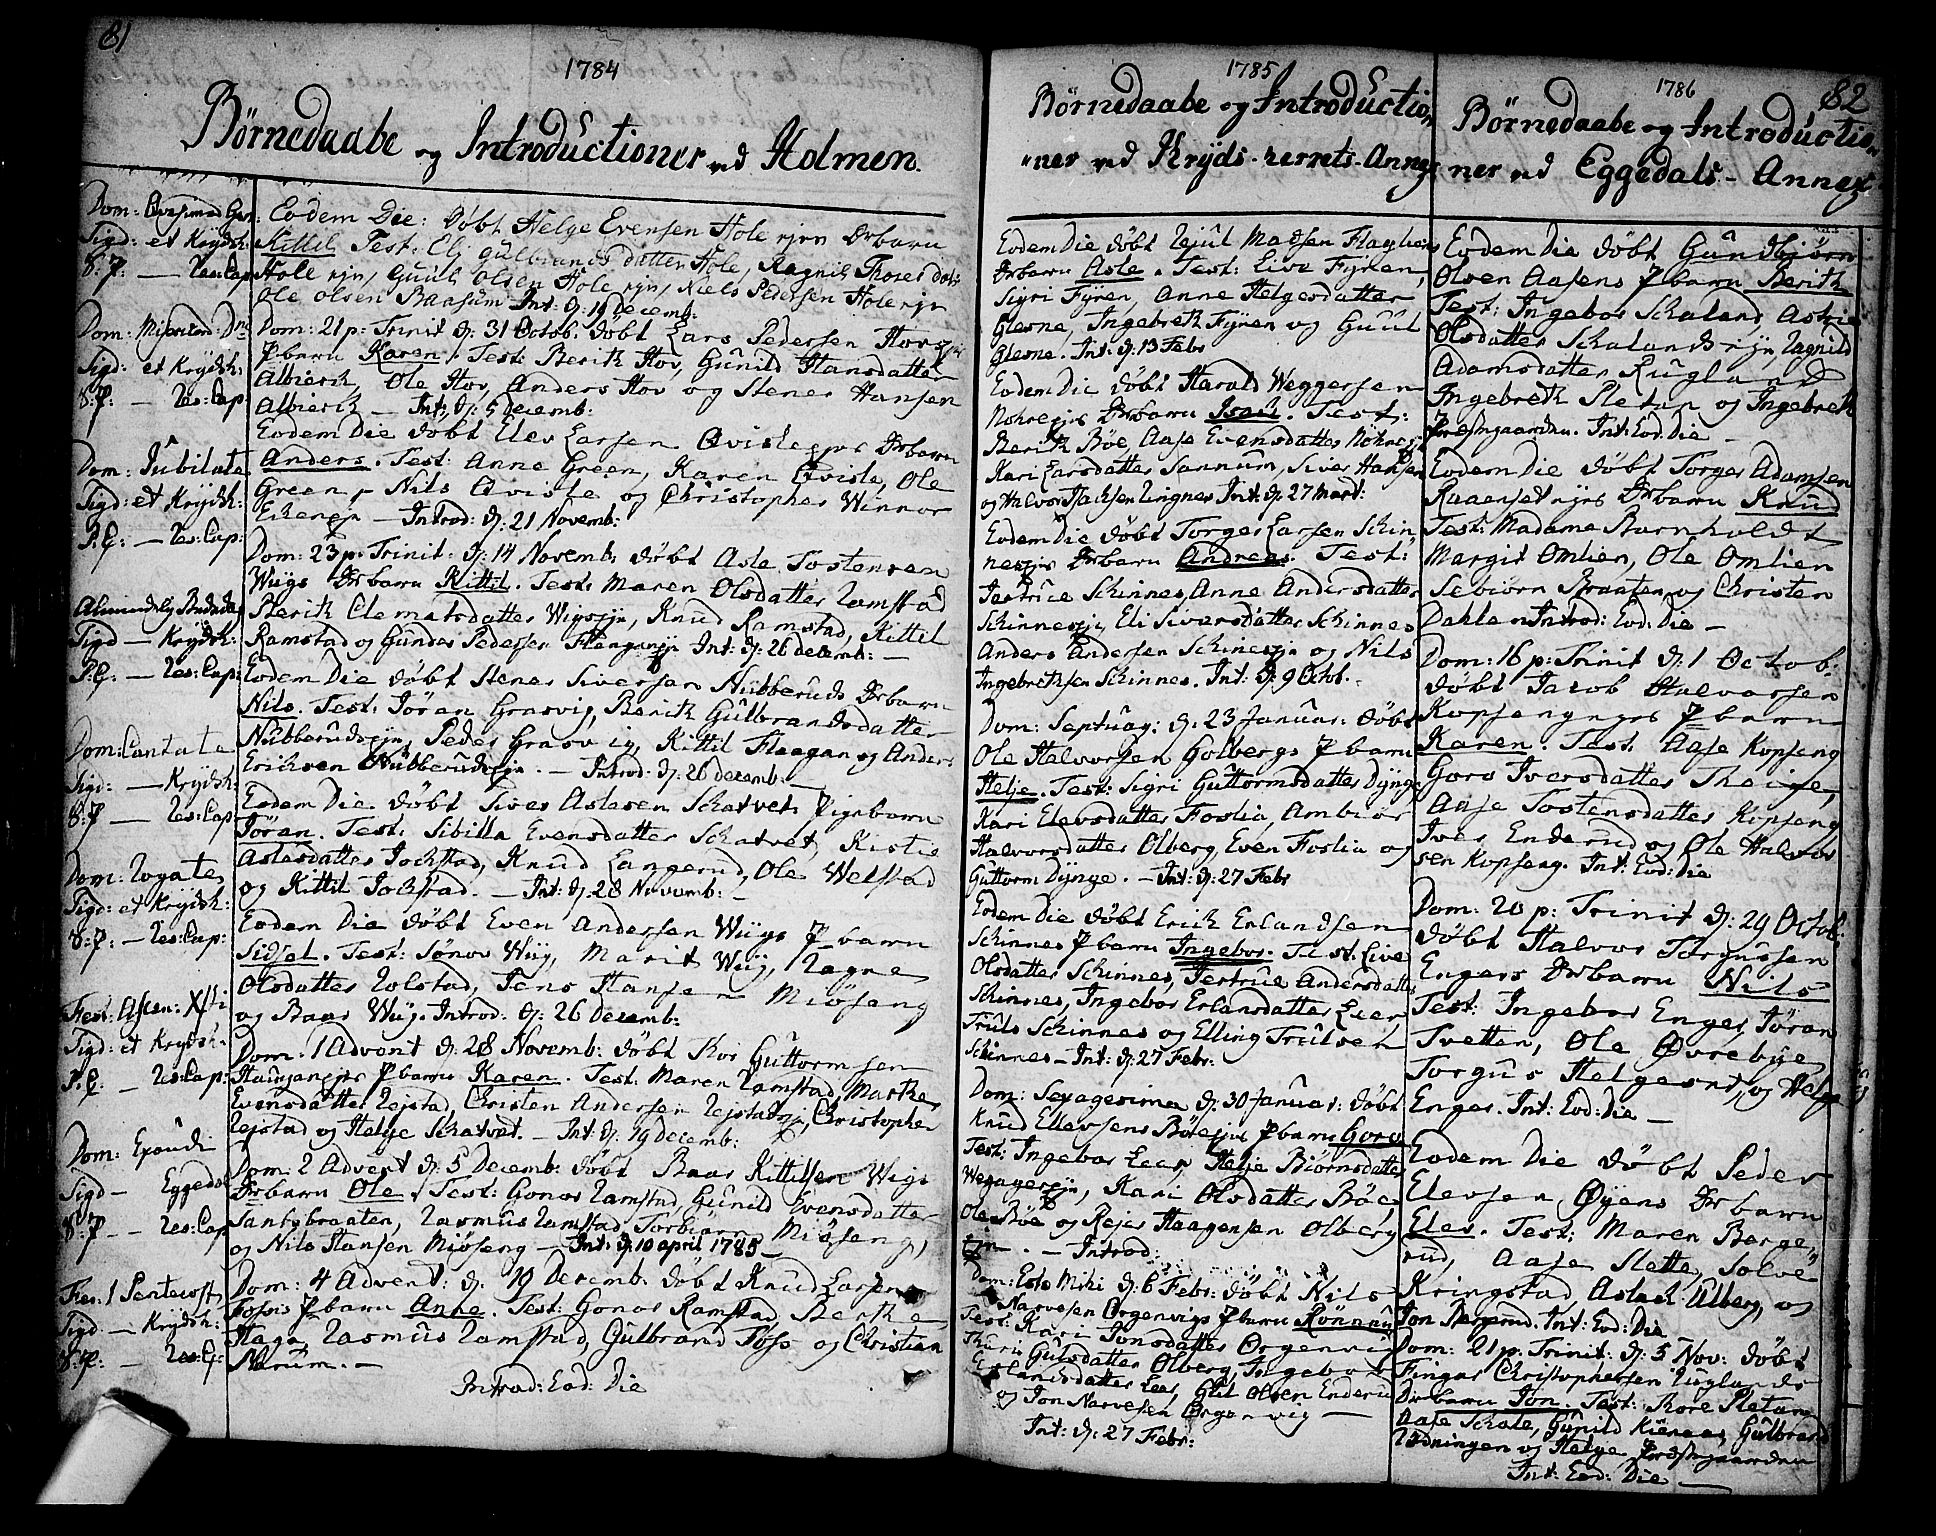 81
1784
Børnedaabe og Introductioner ved Holmen.
Dom: Gen:
Sigd: et Krydsh:
8:7: — Res: Cap
Dom: Misericord: Dni
Sigd: et Krydsh:
8:7: — Res: Cap:
Dom: Jubilate
Sigd: et Krydsh:
P.E: — Res: Cap:
Almindelig Bededag
Sigd — Krydsh:
P.E: — Res: Cap:
Dom: Cantate
Sigd: — Krydsh:
8:7 — Res: Cap:
Dom: Rogate
Sigd: et Krydsh:
8:7: — Res: Cap:
Fest: Ascen: Xsti
Sigd: et Krydsh:
P.E: — Res: Cap:
Dom: Exaudi
Sigd — Eggeda
8:7 — Res: Cap
Fer: 1 Pentecost
Sigd — Krydsh:
8:7: — Res: C:
Eodem Die: døbt Helge Evensen Hole ejrn Drbarn
Kittil Test: Eli Gulbrandsdatter Hole, Ragnil Thoresdatt:
Hole ejn, Guul Olsen Hole ejn, Niels Pedersen Hole ejn
Ole Olsen Baasum Int: d: 19 Decemb:
Dom: 21 p: Trinit d: 31 Octob: døbt Lars Pedersen Hovs
Pbarn Karen. Test: Berith Hov, Gunild Hansdatter
Albierk, Ole Hov, Anders Hov og Stener Hansen
Albierk — Int: d: 5 Decemb:
Eodem Die døbt Elev Larsen Qvisle Drbarn
Anders. Test: Anne Green, Karen Qvisle, Ole
Green, Nils Qvisle og Christopher Winnor
Ekenejn — Introd: d: 21 Novemb:
Dom: 23 p: Trinit: d: 14 Novemb: døbt Asle Tostensen
Wiigs Drbarn Kittil. Test: Maren Olsdatter Ramstad
Berith Clemetsdatter Wigsejn, Knud Ramstad, Kittil
Ramstad og Gunder Pedersen Int: d: 26 Decemb: —
Eodem Die døbt Stener Siversen Nubberuds Drbarn
Nils. Test: Jøran Grasvig, Berith Gulbrandsdatter
Nubberudsejn, Peder Grasvig, Kittil Flaagan og Anders
Eriksen Nubberudsejn. — Introd: d: 26 Decemb: —
Eodem Die døbt Siver Aslesen Schatvets Pigebarn
Jøran. Test: Sibilla Evensdatter Schatvet, Kistie
Aslesdatter Jochstad, Knud Langerud, Ole Welstad
og Kittil Jokstad. — Int: d: 28 Novemb:
Eodem Die døbt Even Andersen Wiigs Pbarn
Sidsel. Test: Sønov Wiig, Marit Wiig, Ragne
Olsdatter Rolstad, Jens Hansen Miøseng
og Baar Wiig. Introd: d: 26 Decemb:
Dom: 1 Advent d: 28 Novemb: døbt Guttormsen
Pbarn Karen. Test: Maren Ramstad, Marthe
Evensdatter Rejstad, Christen Andersen Rejstad, Christopher
Rejstad og Helge Schatvet. — Int: d: 19 Decemb:
Dom: 2 Advent d: 5 Decemb: døbt Baar Kittilsen Wigs
Drbarn Ole. Test: Gonor Ramstad, Gunild Evensdatter
Santybraaten, Rasmus Ramstad, Torbiørn Miøseng,
og Nils Hansen Miøseng — Int: d: 10 April 1785 —
Dom: 4 Advent: d: 19 Decemb: døbt Knud Larsen
Foss Pbarn Anne. Test: Gonor Ramstad, Berthe
Haga, Rasmus Ramstad, Gulbrand Foss og Christian
—
Introd: Eod: Die
1785
Børnedaabe og Introductio-
ner ved Kryds-herrets-Annex
Eodem Die døbt Kjul Madsen Flaghus
Drbarn Asle. Test: Live Fyren,
Sigri Fyren, Anne Helgesdatter
Glesne, Ingebreth Fyren og Guul
Glesne. Int: d: 13 Febr
Eodem Die døbt Harald Weggersen
Drbarn Isach. Test:
Berith Bøe, Aase Evensdatter
Kari Larsdatter Sannum, Siver Hansen
og Halvor Jachsen Ringnes Int: d: 27 Mart:
Eodem Die døbt Torger Larsen Schin-
nes Drbarn Andreas. Test:
Jertrue Schinnes, Anne Andersdatter
Schinnesejn, Eli Siversdatter Schinnes
Anders Andersen Schinesejn og Nils
Ingebrethsen Schinnes. Int: d: 9 Octob. —
Dom: Septuag: d: 23 Januar: døbt
Ole Halvorsen Golbergs Pbarn
Helje. Test: Sigri Guttormsdatter Dynge
Kari Elevsdatter Foslia, Ambiør
Halvorsdatter Olberg, Even Foslia og
Guttorm Dynge. — Int: d: 27 Febr
Eodem Die døbt Erick Erlandsen
Schinnes Pbarn Ingebor. Test: Live
Olsdatter Schinnes, Jertrue Andersdatter
Schinnes, Ingebor Erlansdatter Leer
Truls Schinnes og Elling Trulsen
Schinnes — Int: d: 27 Febr:
Dom: Sexagesima d: 30 Januar: døbt
Knud Ellevsens Bøeejn Pbarn Goro
Test: Ingebor Leer, Helje Biørnsdatter
Kari Olsdatter Bøe
Ole Bøe og Rejer Haagensen Olberg
ejn. — Introd:
Dom: Esto Mihi d: 6 Febr: døbt Nils
Narvesen Ørgenvigs Pbarn Rønnau
Test: Kari Jonsdatter Ørgenvig
Guri Gulsdatter Olberg, Ingebor
Erlandsdatter Leer, Gul Olsen Enderu
og Jon Narvesen Ørgenvig —
Int: d: 27 Febr:
1786
82
Børnedaabe og Introductio-
ner ved Eggedals-Annex
Eodem Die døbt Gundbjørn
Olsen Aasens Pbarn Berith
Test: Ingebor Schaland, Astrie
Olsdatter Schalandsejn, Ragnild
Adamsdatter Rugland
Ingebreth Pletan og Ingebreth
Præstgaarden. Int: Eod: Die —
Eodem Die døbt Torger Adamsen
Drbarn Knud
Test: Madame Barnholdt
Margit Omlien, Ole Omlien
Sebiørn Braaten og Christen
Dahlen Introd: Eod: Die —
Dom: 16 p: Trinit d: 1 Octob:
døbt Jacob Halvorsen
Kopsengejes Pbarn
Karen. Test: Aase Kopseng
Goro Iversdatter Theige,
Aase Tostensdatter Kopseng
Iver Enderud og Ole Halvor-
sen Kopseng. Int: Eod: Die
Dom: 20 p: Trinit d: 29 Octob:
døbt Halvor Torgussen
Engers Drbarn Nils
Test: Ingebor Enger, Jøran
Tvetten, Ole Øvrebye
Torgus Helgesrd, og Helge
Enger. Int: Eod: Die —
Eodem Die døbt Peder
Elevsen Øyens Drbarn
Elev. Test: Maren Berge-
rud, Aase Slette, Solve
Kringstad, Aslach Ulberg, og
Jon Int: Eod: Die
Dom: 21 p: Trinit: d: 5 Nov: døbt
Fingar Christophersen Ruglands
Drbarn Jon. Test: Thore Pletan
Aase Schale, Gunild Kiennaas, Gulbrand
Rødningen og Helge Præstgaarden
Int: Eod: Die —